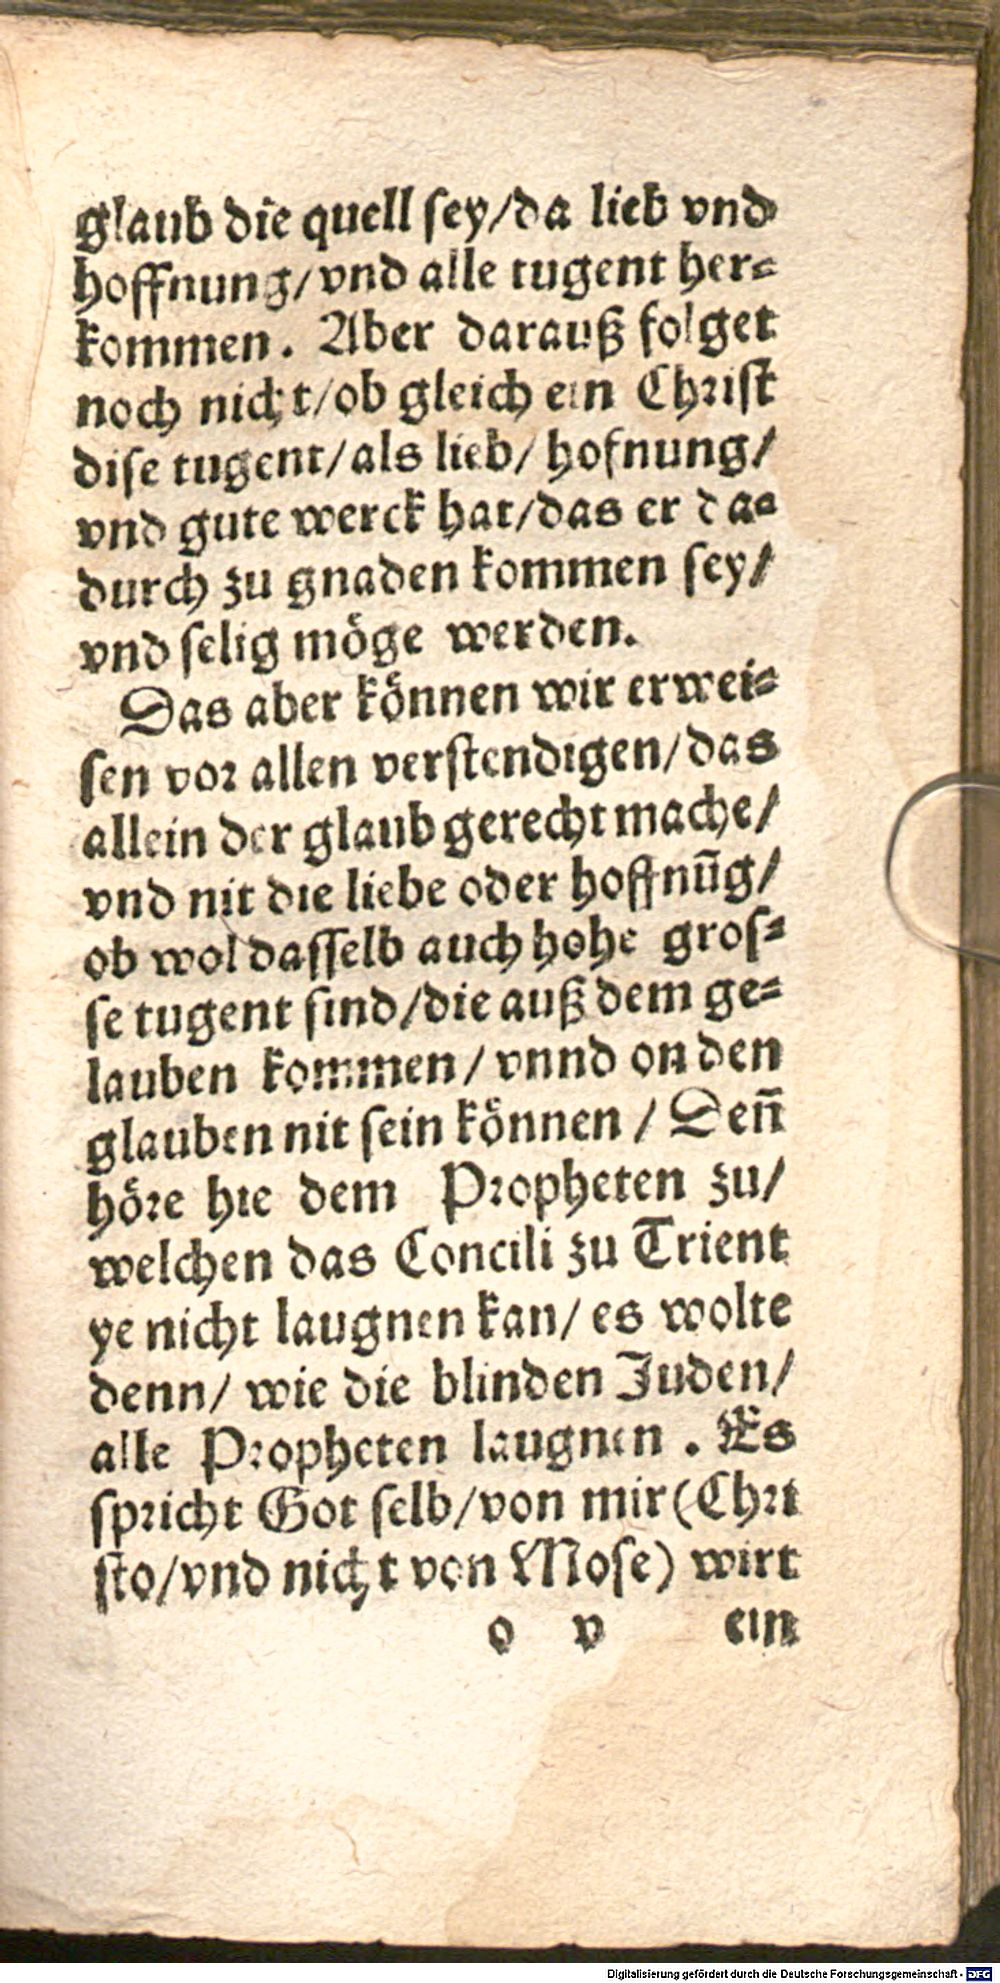 glaub die quell ſey/da lieb vnd
hoffnung/vnd alle tugent her⸗
kommen. Aber darauß folget
noch nicht/ob gleich ein Chriſt
diſe tugent/als lieb/ hofnung/
vnd gute werck hat/das er da⸗
durch zu gnaden kommen ſey/
vnd ſelig möge werden.
Das aber können wir erwei⸗
ſen vor allen verſtendigen/das
allein der glaub gerecht mache/
vnd nit die liebe oder hoffnūg/
ob wol daſſelb auch hohe groſ⸗
ſe tugent ſind/die auß dem ge⸗
lauben kommen/vnnd on den
glauben nit ſein können/ Deñ
höre hie dem Propheten zu/
welchen das Concili zu Trient
ye nicht laugnen kan/es wolte
denn/ wie die blinden Juden/
alle Propheten laugnen. Es
ſpricht Got ſelb/von mir(Chri
ſto/vnd nicht von Moſe) wirt
o v ein
Digitalisierung gefördert durch die Deutsche Forschungsgemeinschaft - DFG